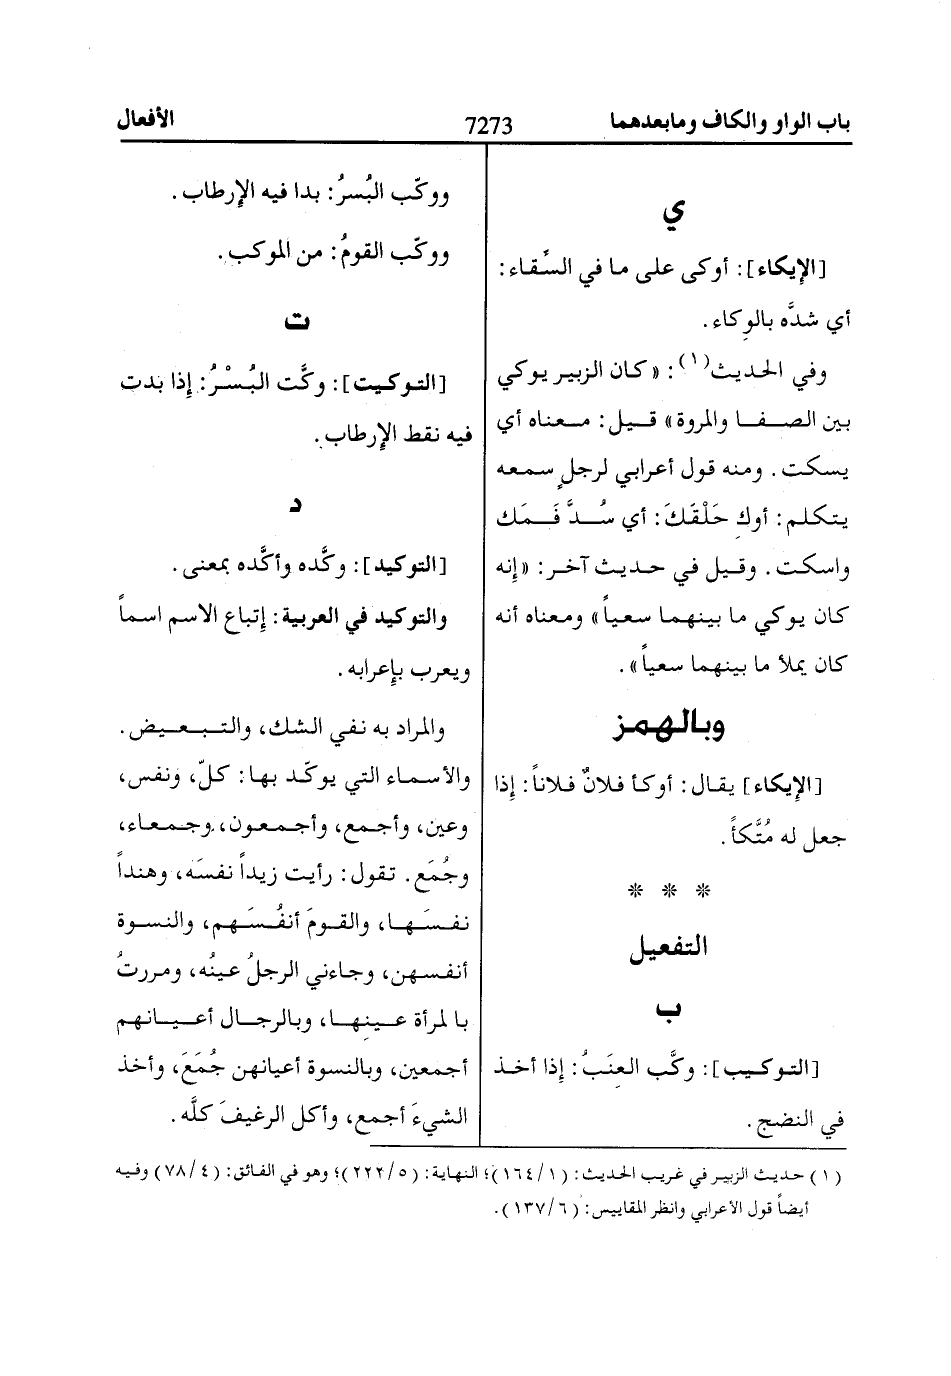 باب الواو والكاف ومابعدهما
7273
الأفعال
ي
[الإيكاء]: أوكى على ما في السِّقاء:
أي شدَّه بالوِكاء.
وفي الحديث(١): «كان الزبير يوكي
بين الصفا والمروة» قيل: معناه أي
يسكت. ومنه قول أعرابي لرجلٍ سمعه
يتكلم: أوكِ حَلْقَكَ: أي سُدَّ فَمَك
واسكت. وقيل في حديث آخر: «إنه
كان يوكي ما بينهما سعياً» ومعناه أنه
كان يملأ ما بينهما سعياً».
وبالهمز
[الإيكاء] يقال: أوكأ فلانٌ فلاناً: إذا
جعل له مُتَّكأً.
* * *
التفعيل
ب
[التوكيب]: وكَّب العنَبُ: إذا أخذ
في النضج.
ووكّب البُسرُ: بدا فيه الإرطاب.
ووكّب القومُ: من الموكب.
ت
[التوكيت]: وكَّت البُسْرُ: إذا بدت
فيه نقط الإرطاب.
د
[التوكيد]: وكَّده وأكَّده بمعنى.
والتوكيد في العربية: إتباع الاسم اسماً
ويعرب بإعرابه.
والمراد به نفي الشك، والتبعيض.
والأسماء التي يوكّد بها: كلّ، ونفس،
وعين، وأجمع، وأجمعون، وجمعاء،
وجُمَع. تقول: رأيت زيداً نفسَه، وهنداً
نفسَها، والقومَ أنفُسَهم، والنسوة
أنفسهن، وجاءني الرجلُ عينُه، ومررتُ
بالمرأة عينِها، وبالرجال أعيانهم
أجمعين، وبالنسوة أعيانهن جُمَعَ، وأخذ
الشيءَ أجمع، وأكل الرغيفَ كلَّه.
(١) حديث الزبير في غريب الحديث: (١/١٦٤)؛ النهاية: (٥/٢٢٢)؛ وهو في الفائق: (٤/٧٨) وفيه
أيضاً قول الأعرابي وانظر المقاييس: (٦/١٣٧).